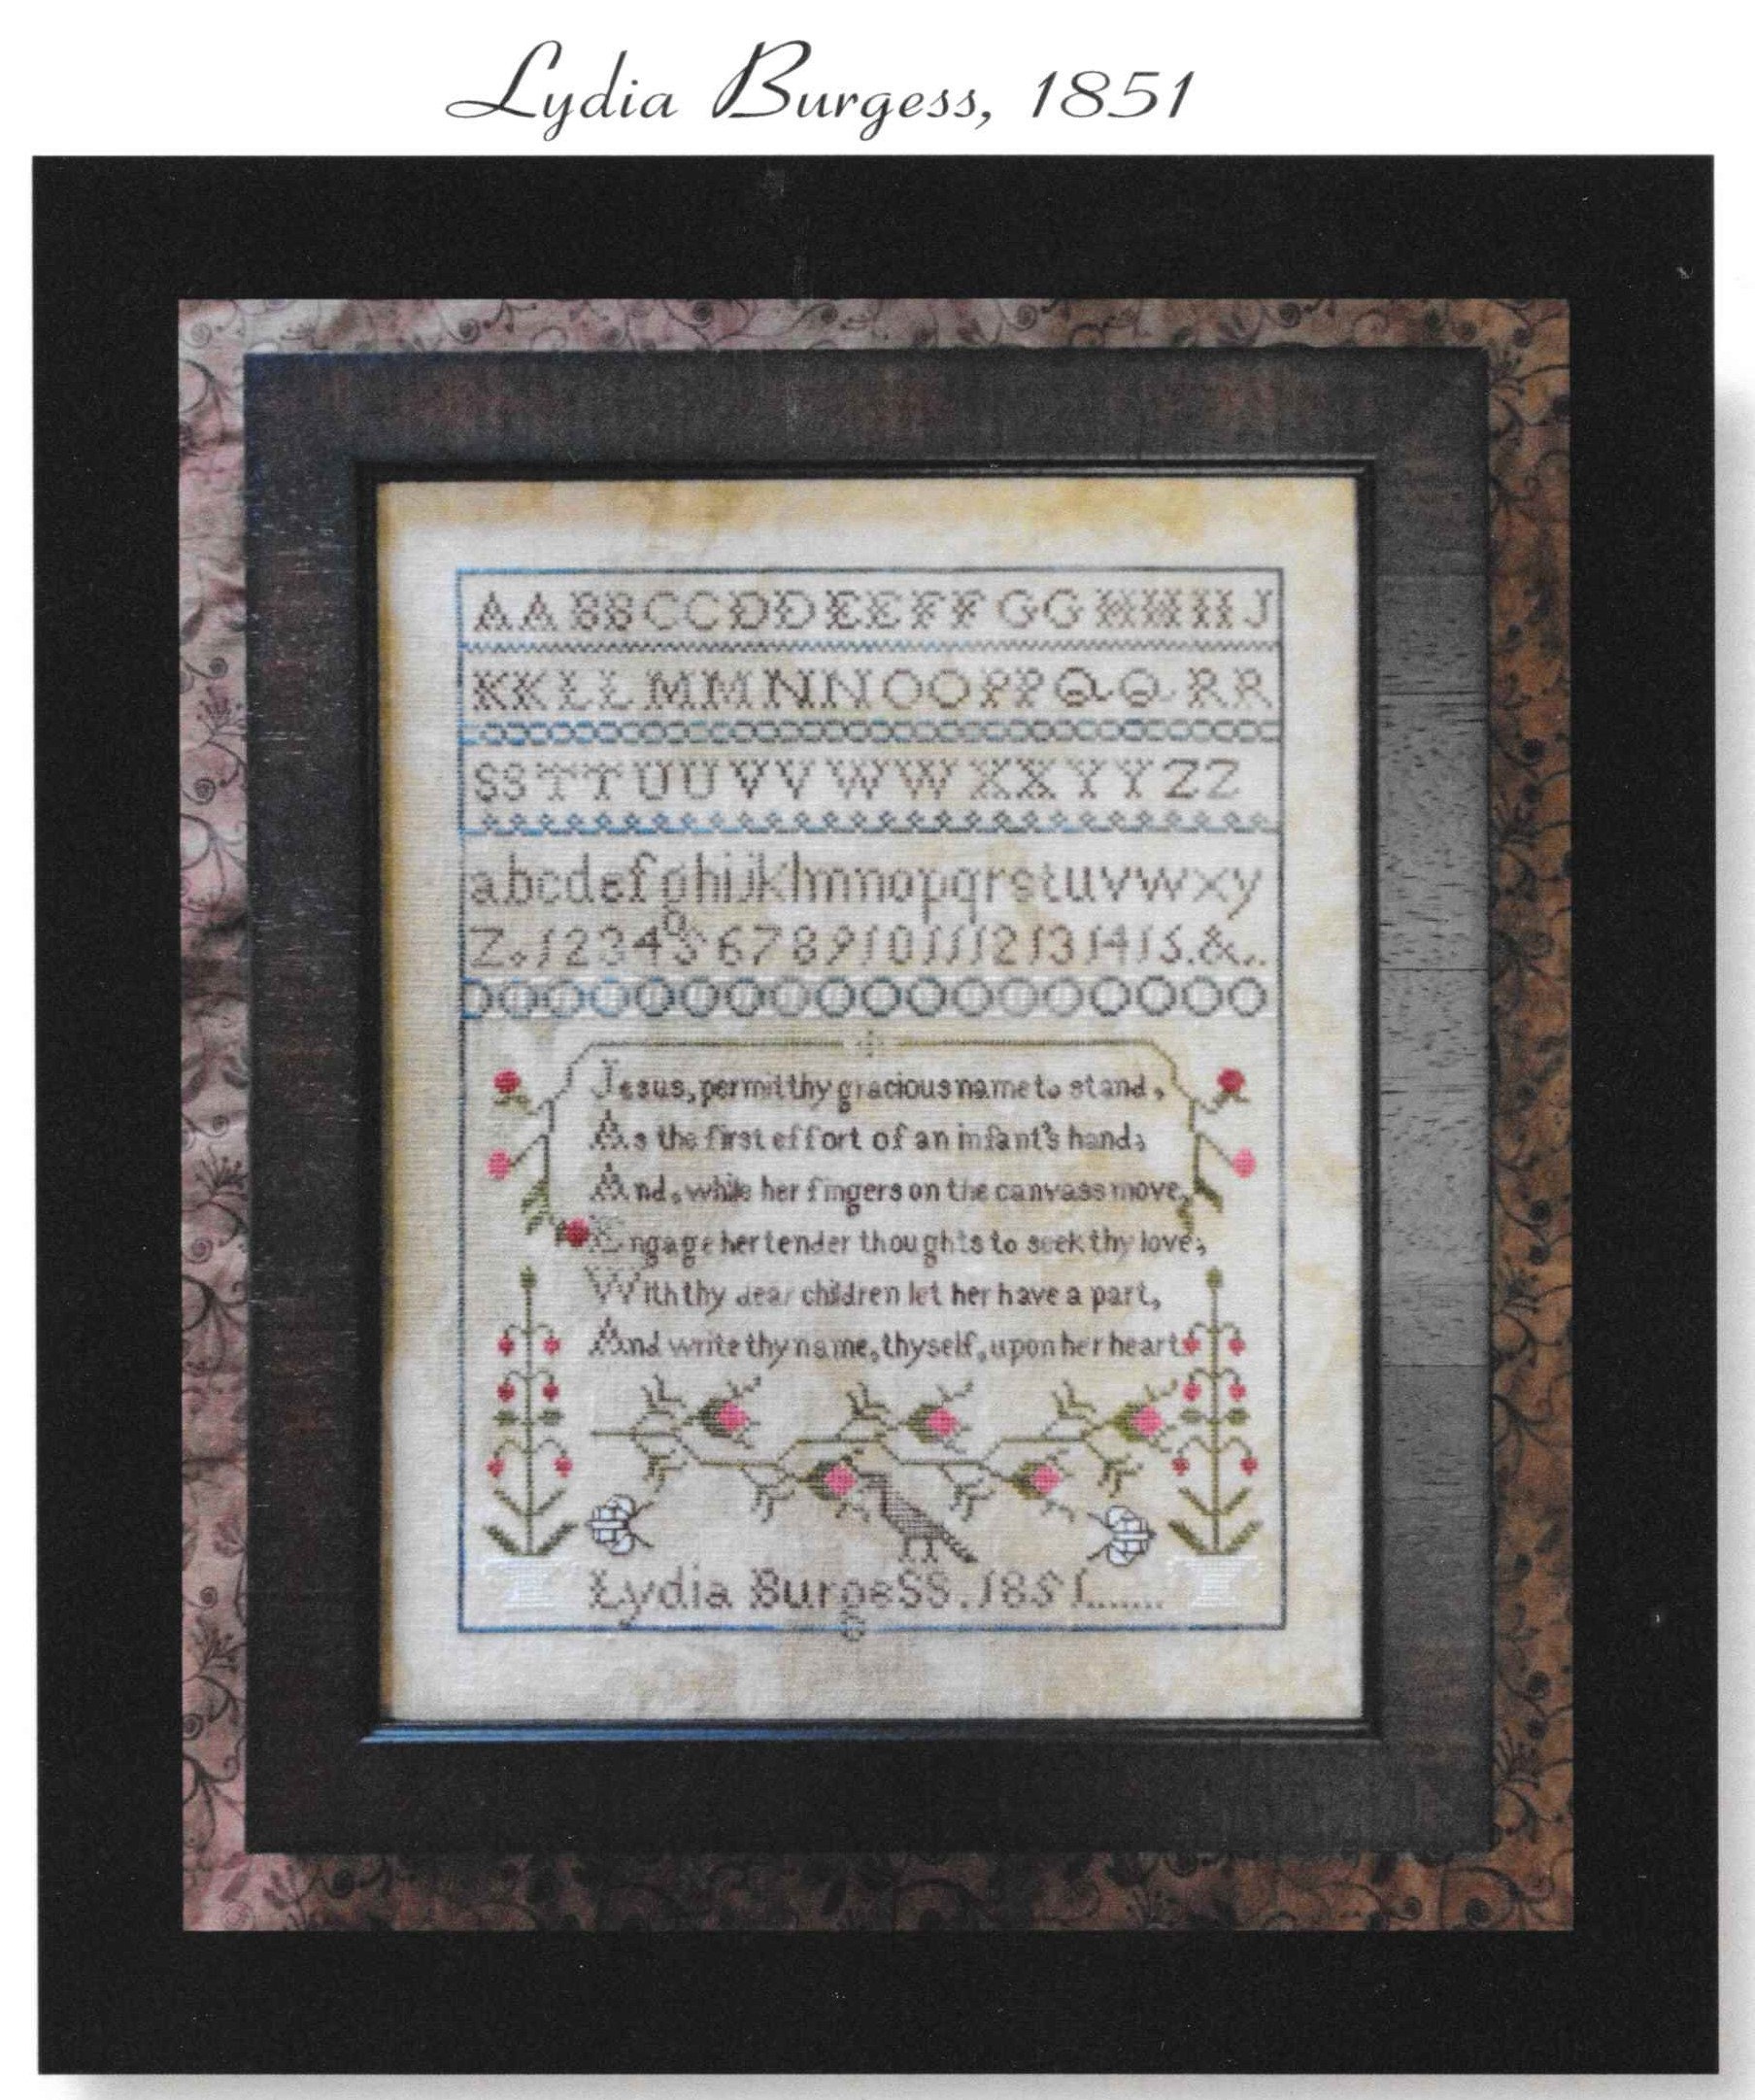 Lydia Burgess, 1851
AABBCCDDEEFFGGHHIIJ
KKLLMMNNOOPPQQRR
SSTTUUVVWWXXYYZZ
abcdefghijklmnopqrstuvwxy
Z.123456789101112131415.&..
Jesus, permit thy gracious name to stand,
As the first effort of an infant's hand;
And, while her fingers on the canvass move,
Engage her tender thoughts to seek thy love;
With thy dear children let her have a part,
And write thy name, thyself, upon her heart.
Lydia BurgeSS.1851.......